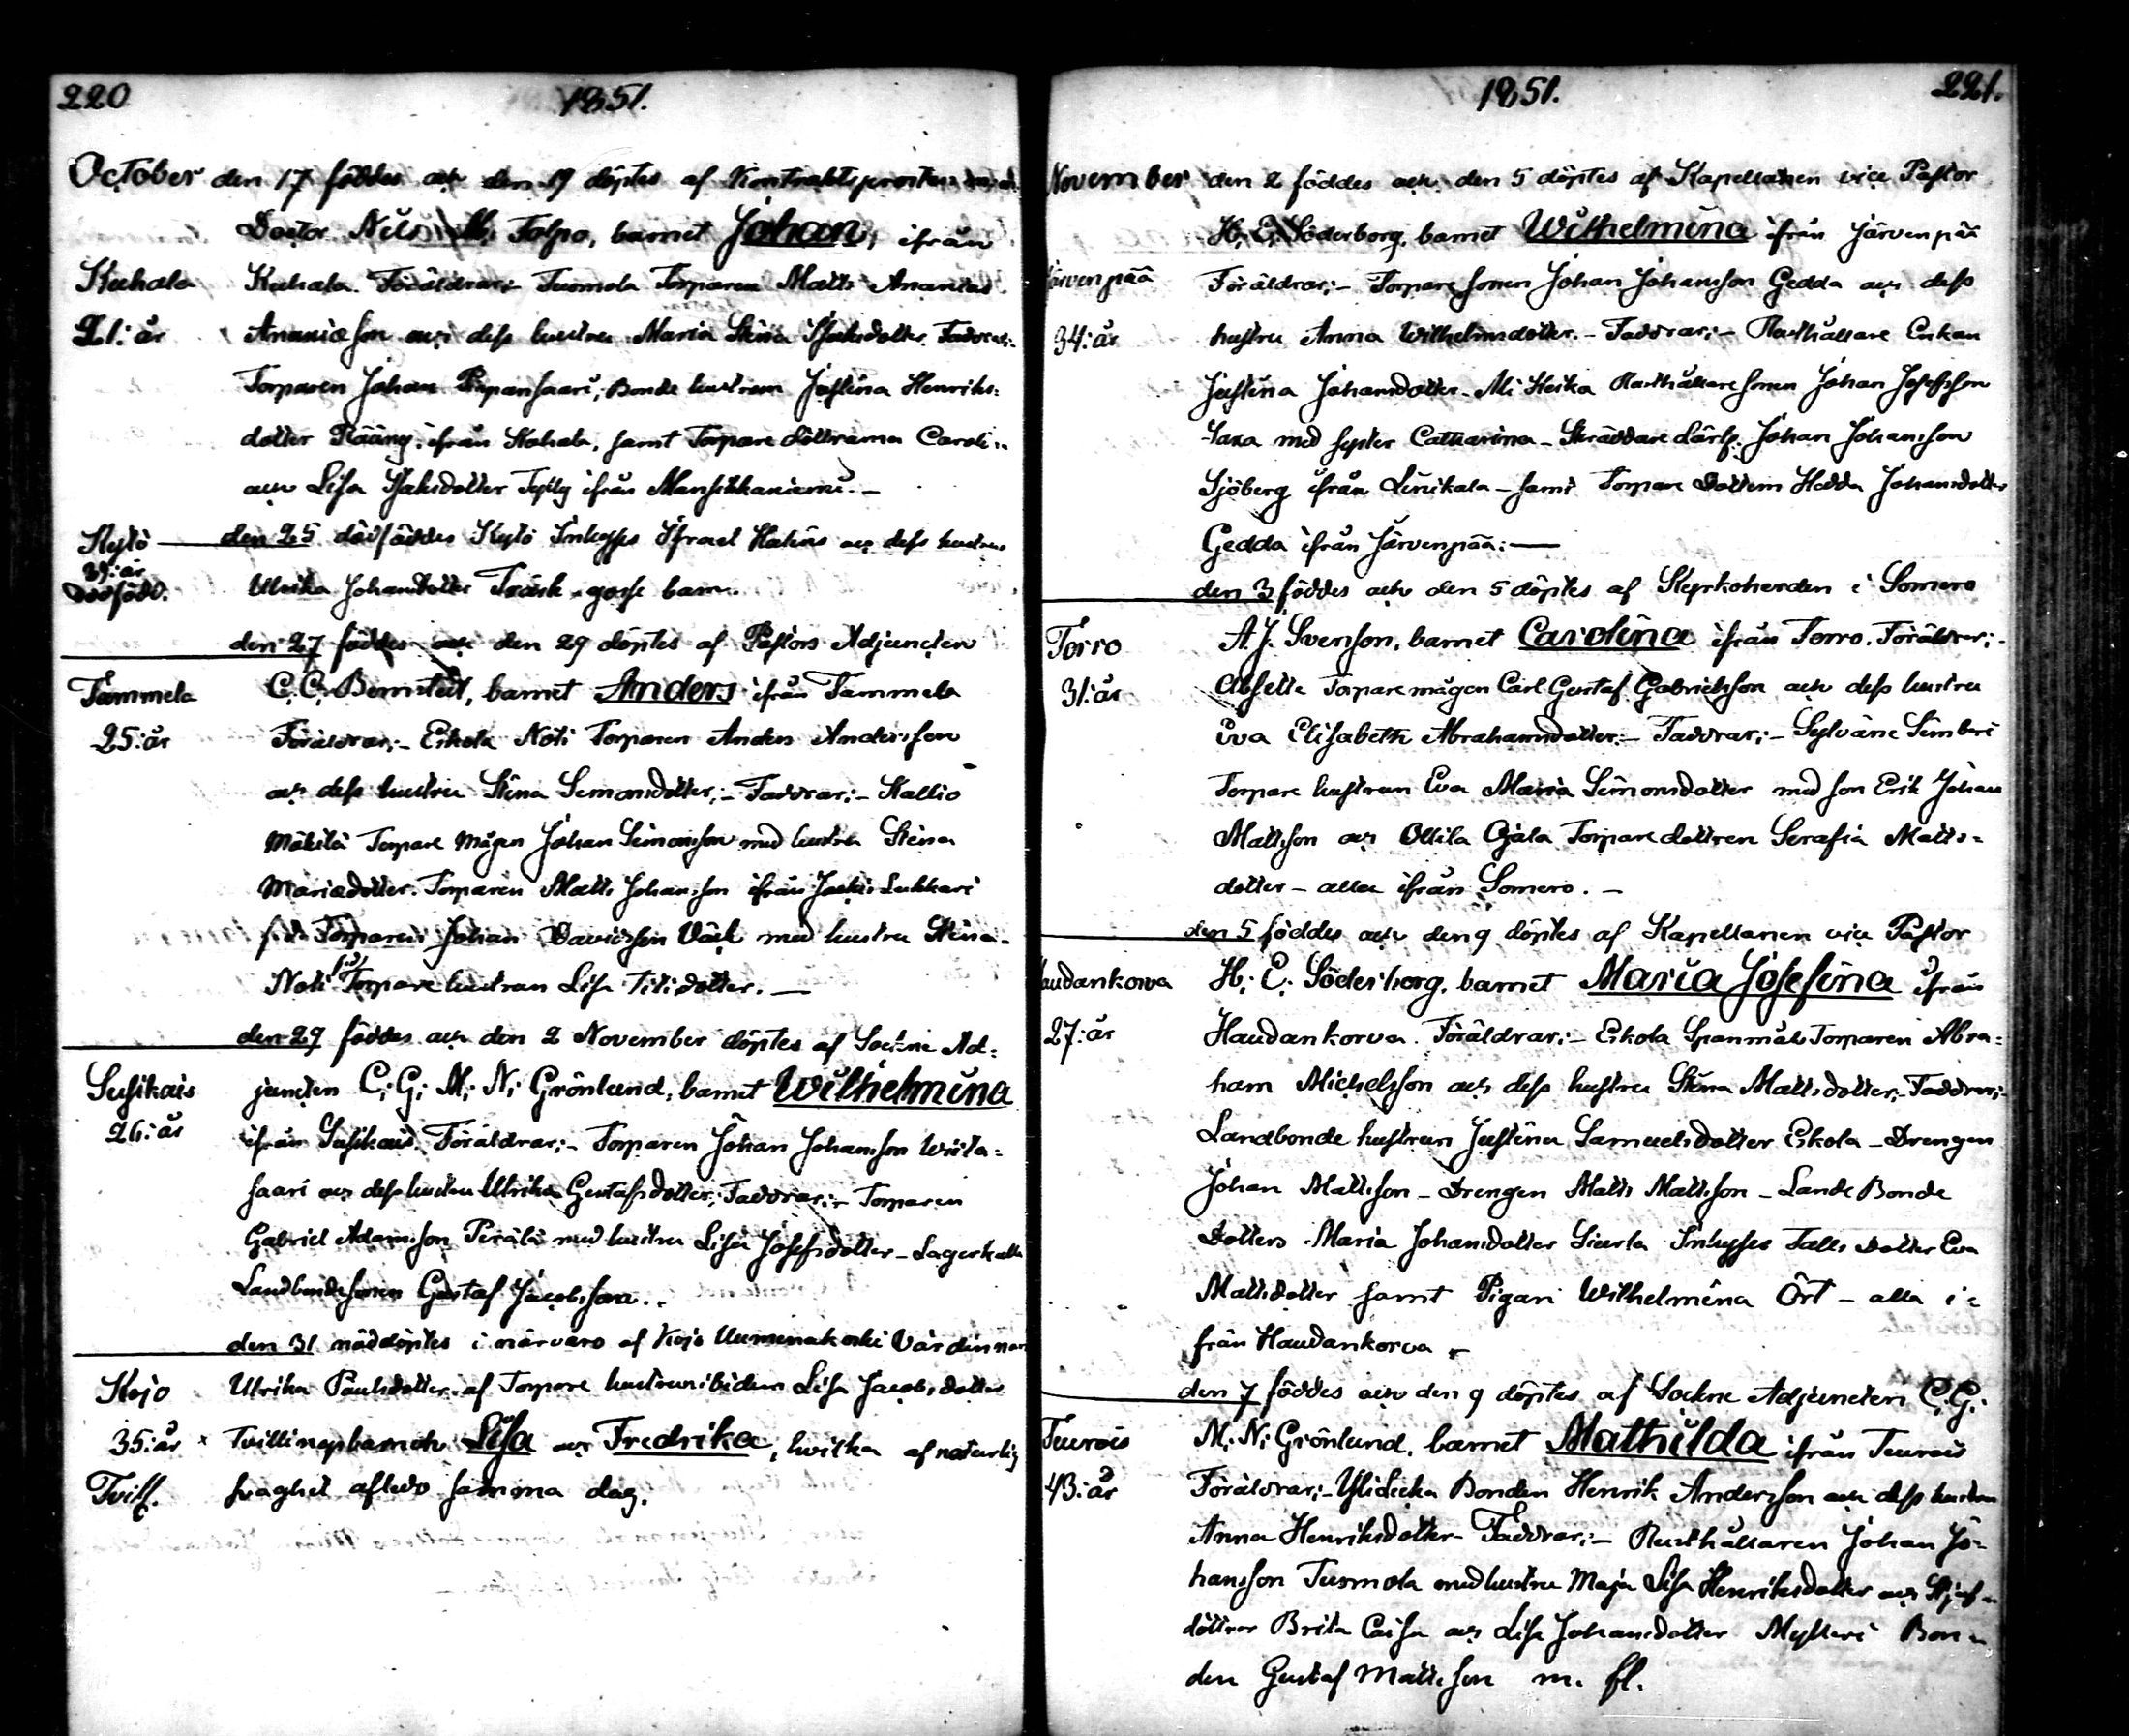 220
1851.
October den 17 föddes och den 19 döptes af Kontraktsprosten
Doctor Nils M. Tolpo, barnet Johan, ifrån
Kuhala
Kuhala. Föräldrar:- Tuomola Torparen Matts Ananias
21: år
Ananiæson och dess hustru Maria Stina Isaksdotter, Faddrar:-
Torparen Johan Papansaari, Bonde hustrun Justina Henriks-
dotter Rääng, ifrån Kohala, samt Torpare döttrarna Caroli:
och Lisa Isaksdotter ifrån Mansikkaniemi. -
Kylö
den 25 dödföddes Kylö Inhyses Israel Hakins och dess hustrus
39: år
dödfödd.
Ulrika Johansdotter Träsk - gosse barn.
den 27 föddes och den 29 döptes af Pastors Adjuncten
Tammela
C. C. Bernstedt, barnet Anders ifrån Tammela
25: år
Föräldrar:- Eskola Noki Torparen Anders Andersson
och dess hustru Stina Simonsdotter:- Faddrar:- Kallio
Mäkilä Torpare mågen Johan Simonsson med hustru Stina
Mariædotter. Torparen Matts Johansson ifrån Jockis Lukkari
f.d. Torparen Johan Davidsson Väck med hustru Stina -
Noki f.d. Torpare hustrun Lisa Titidotter. -
den 29 föddes och den 2 November döptes af Sockne Ad-
Susikais
juncten C: G: M: N: Grönlund, barnet Wilhelmina
26: år
ifrån Susikais. Föräldrar:- Torparen Johan Johansson Wiita-
saari och dess hustru Ulrika Gustafsdotter, Faddrar:- Torparen
Gabriel Adamsson Perälä med hustru Lisa Josefsdotter - Lagerkalla
Landbondesonen Gustaf Jacobsson.
den 31 nöddöptes i närvaro af Kojo Uuminakoski Värdinnan
Kojo
Ulrika Paulsdotter, af Torpare hustrun ibidem Lisa Jacobsdotter
35: år
Tvillingsbarnen Lisa och Fredrika, hvilka af naturlig
Tvill.
svaghet afledo samma dag.
1851.
221.
November den 2 föddes och den 5 döptes af Kapellanen vice Pastor
H. E. Söderborg, barnet Wilhelmina ifrån Järvenpää
Järvenpää
Föräldrar:- Torpare sonen Johan Johansson Gedda och dess
34: år
hustru Anna Wilhelmsdotter. - Faddrar:- Rusthållare Enkan
Justina Johansdotter - Ali Heika Rusthållaresonen Johan Josefsson
Jaxa med syster Catharina - Skräddare Lärl. Johan Johansson
Sjöberg ifrån Linikala - samt Torpare Dottern Hedda Johansdotter
Gedda ifrån Järvenpää: -
den 3 föddes och den 5 döptes af Kyrkoherden i Somero
Torro
A. J. Svenson, barnet Carolina ifrån Torro. Föräldrar:-
31: år
Torpare mågen Carl Gustaf Gabrielsson och dess hustru
Eva Elisabeth Abrahamsdotter:- Faddrar:- Sylväne Simberi
Torpare hustrun Eva Maria Simonsdotter med son Erik Johan
Mattsson och Ollila Ojala Torpare dottren Serafia Matts-
dotter - alla ifrån Somero. -
den 5 föddes och den 9 döptes af Kapellanen vice Pastor
Haudankorva
H: E: Söderborg, barnet Maria Josefina ifrån
27: år
Haudankorva. Föräldrar:- Eskola Spanmåls Torparen Abra-
ham Michelsson och dess hustru Stina Mattsdotter, Faddrar:-
Landbonde hustrun Justina Samuelsdotter Eskola - Drengen
Johan Mattsson - Drengen Matts Mattsson - Lande Bonde
Dottern Maria Johansdotter Sierla Inhyses Falls Dotter Eva
Mattsdotter samt Pigan Wilhelmina Ört - alla i-
från Haudankorva.
den 7 föddes och den 9 döptes af Sockne Adjuncten C. G.
Teurois
M. N: Grönlund, barnet Mathilda ifrån Teurois
43: år
Föräldrar:- Ylidicka Bonden Henrik Andersson och dess hustru
Anna Henriksdotter - Faddrar:- Rusthållaren Johan Jo-
hansson Tuomola med hustru Maja Lisa Henriksdotter och Stjuf-
döttrar Brita Caisa och Lisa Johansdotter Myllari Bon-
den Gustaf Mattsson m. fl.